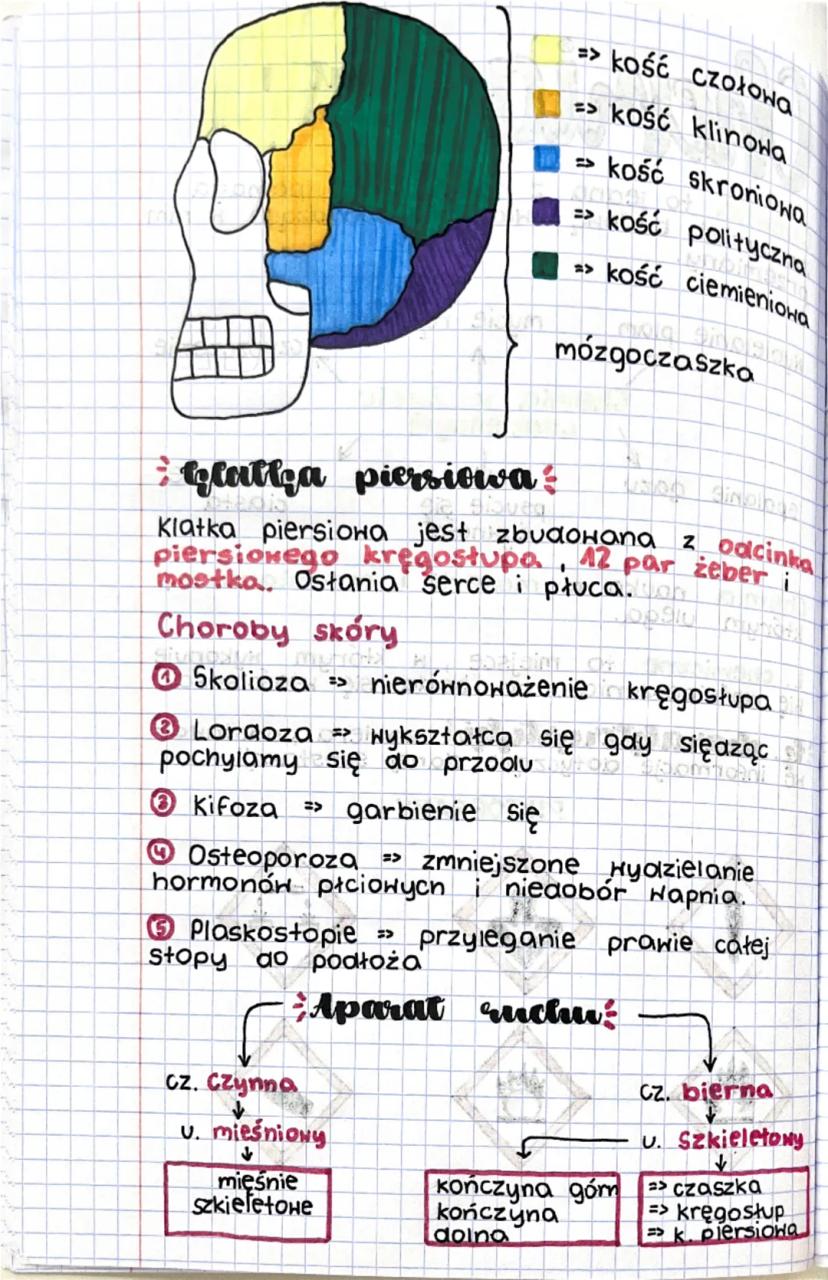 => kość czołowa
=> kość klinowa
=> kość skroniowa
=> kość polityczna
=> kość ciemieniowa
mózgoczaszka
Klatka piersiowa
Klatka piersiowa jest zbudowana z odcinka
piersiowego kręgosłupa, 12 par żeber i
mostka. Osłania serce i płuca.
Choroby skóry
① Skolioza => nierównoważenie kręgosłupa
② Lordoza => wykształca się gdy siędząc
pochylamy się do przodu
③ Kifoza => garbienie się
④ Osteoporoza => zmniejszone wydzielanie
hormonów płciowych i niedobór wapnia.
⑤ Płaskostopie => przyleganie prawie całej
stopy do podłoża
Aparat ruchu
cz. czynna
cz. bierna
u. mieśniowy
u. szkieletowy
mięśnie
szkieletowe
kończyna górn
kończyna
dolna
=> czaszka
=> kręgosłup
=> k. piersiowa